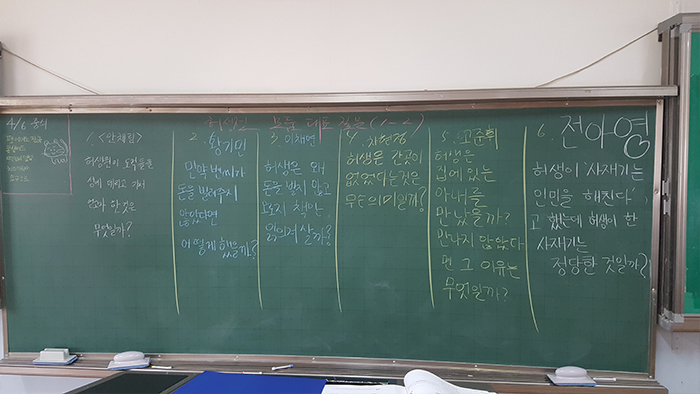 4/6
허생전 모둠 대표 질문 (1-2)
1. <안채림>
허생원이 도적들을
섬에 데리고 가서
얻고자 한 것은
무엇일까?
2. 황기민
만약 변씨가
돈을 빌려주지
않았다면
어떻게 했을까?
3. 이채연
허생은 왜
돈을 받지 않고
오로지 책만
읽으며 살까?
허생은 산 곳이
없었다는 것은
무슨 의미일까?
5. 고준휘
허생은
집에 있는
아내를
만났을까?
만나지 않았다
면 그 이유는
무엇일까?
6. 전아영
허생이 사재기는
인민을 해친다
고 했는데 허생이 한
사재기는
정당한 것일까?